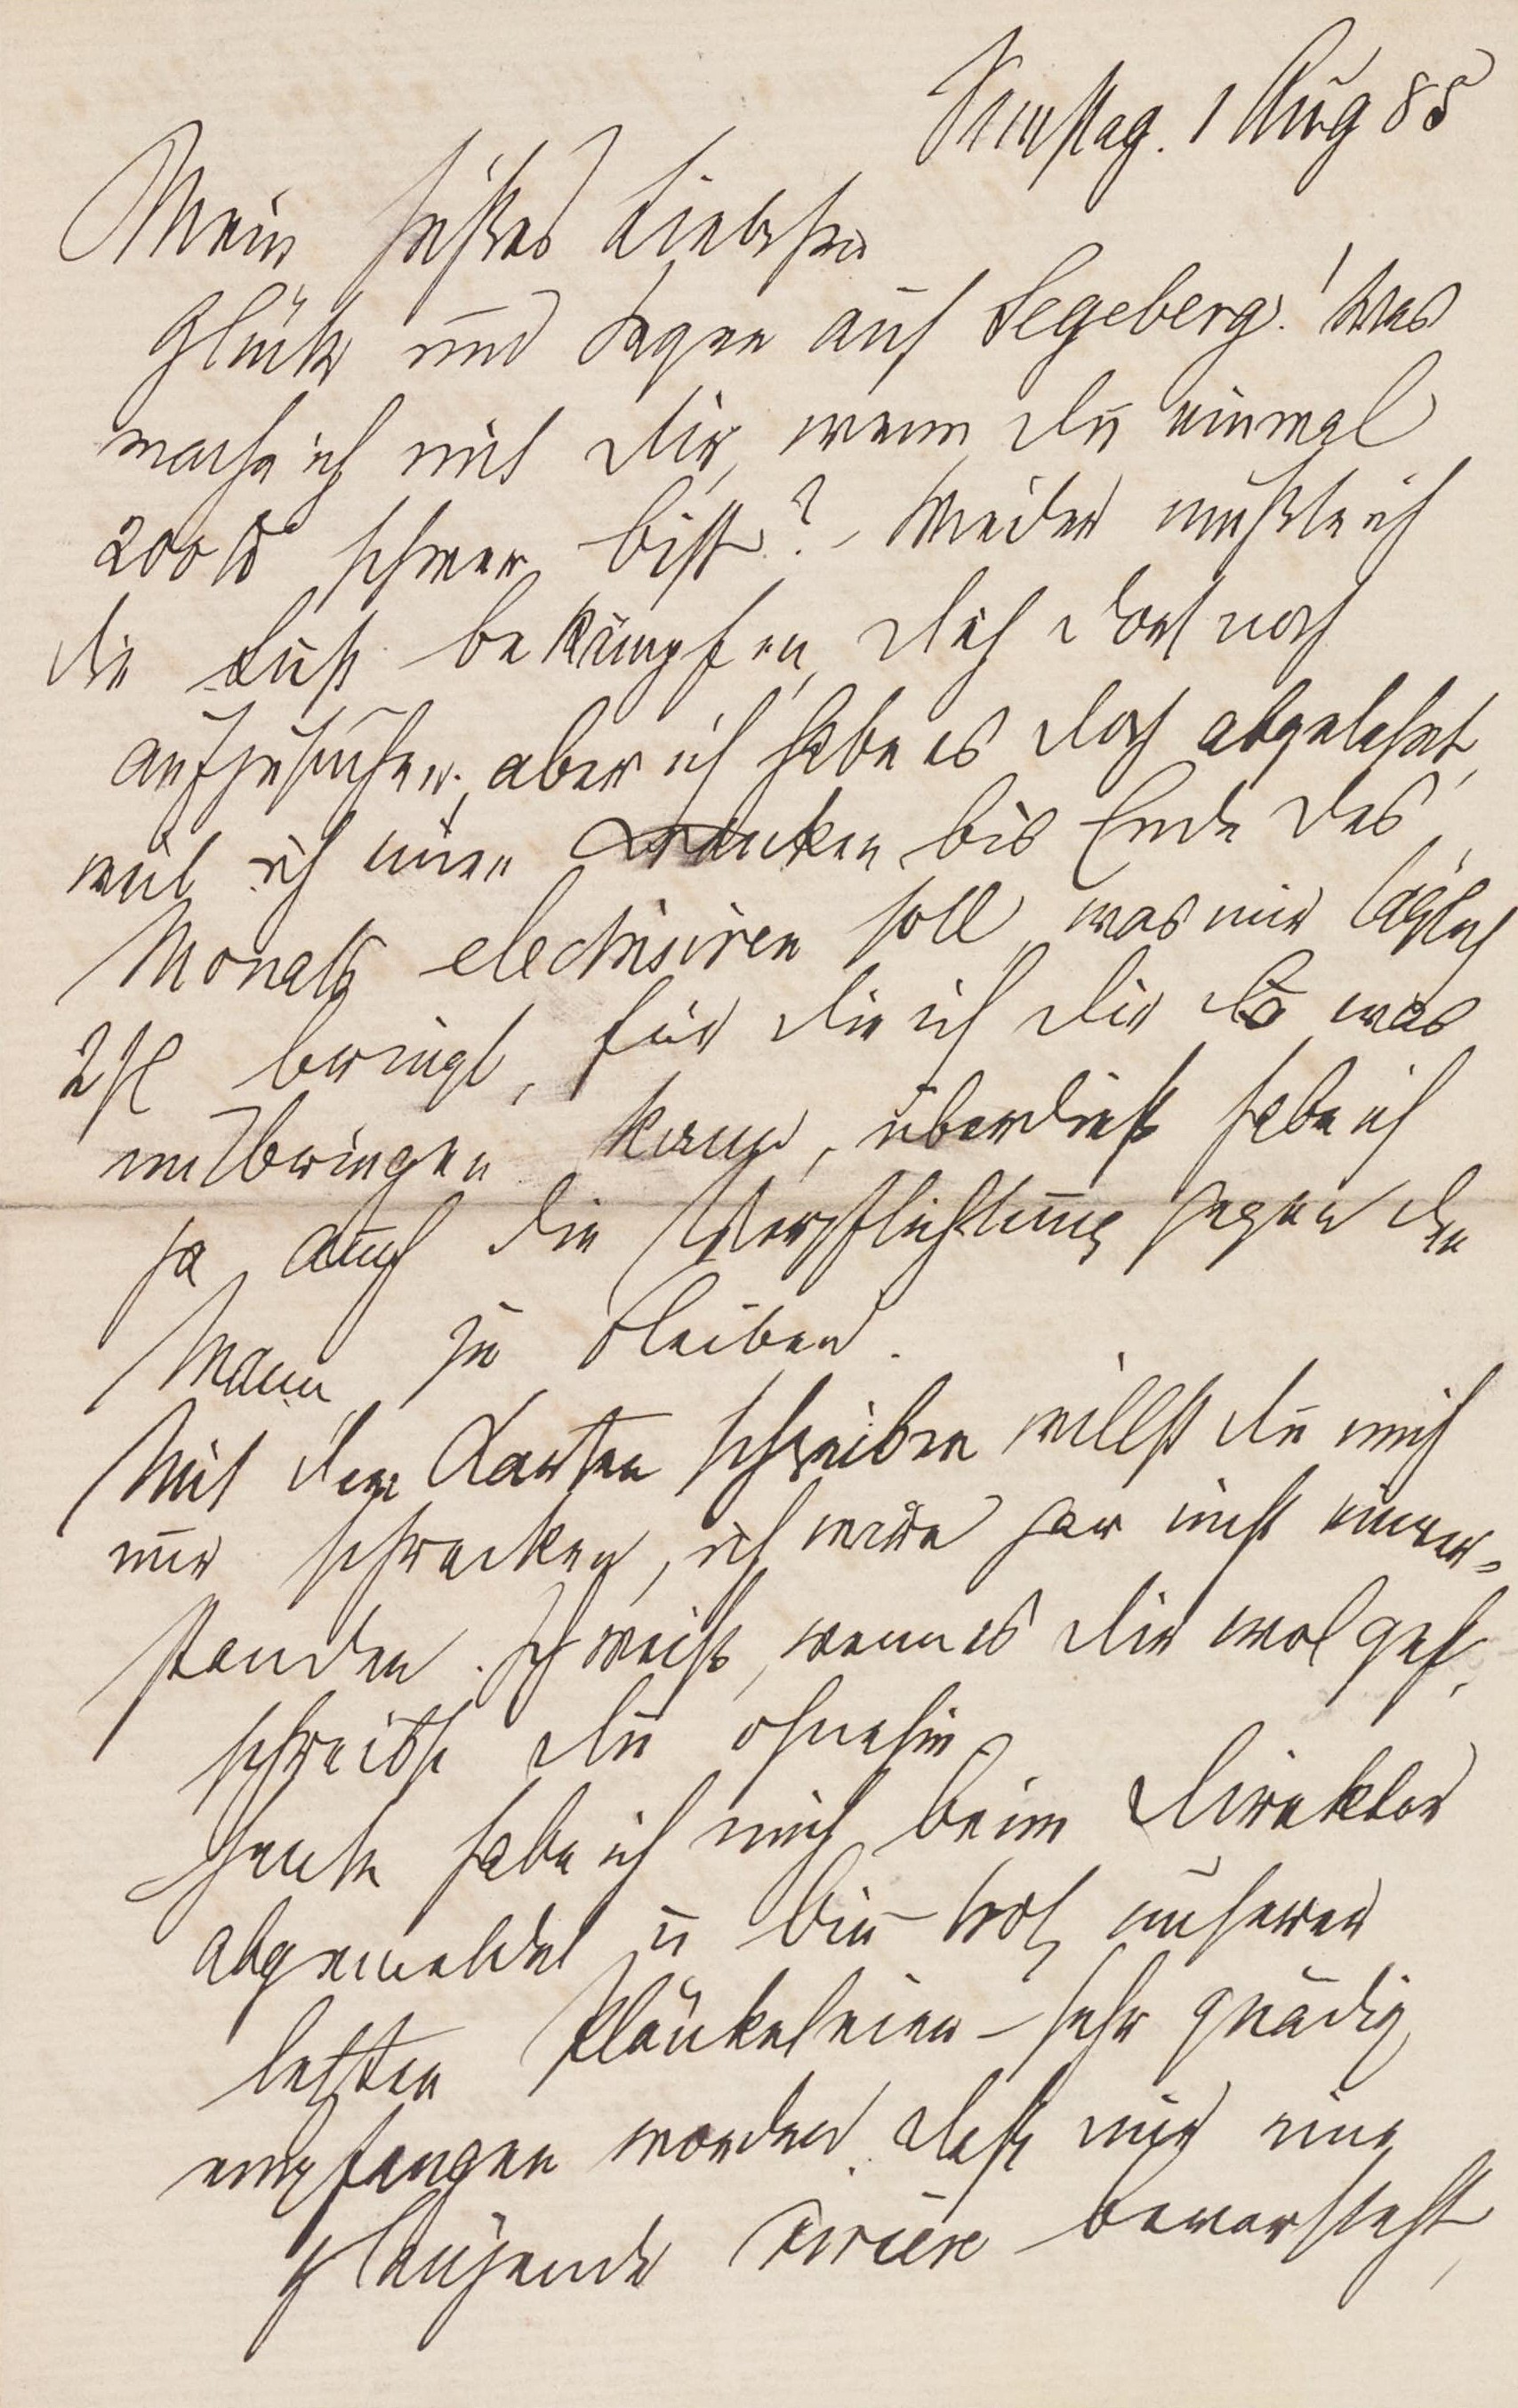 Samstag. 1 Aug 85
Mein süßes Liebchen
Glück und Segen auf Segeberg! Was
mach ich mit Dir, wenn Du einmal
200 ℔ schwer bist? – Wieder mußte ich
die Lust bekämpfen, Dich dort noch
aufzusuchen, aber ich habe es doch abgelehnt,
weil ich einen Kranken bis Ende des
Monats electrisiren soll, was mir täglich
2 fl bringt, für die ich Dir was
mitbringen kann, überdieß habe ich
ja auch die Verpflichtung gegen den
Mann zu bleiben.
Mit dem Karten schreiben willst Du mich
nur schrecken, ich wäre gar nicht einver-
standen. Ich weiß, wenn es Dir wol geht,
schreibst Du ohnehin.
Heute habe ich mich beim Direktor
abgemeldet u bin – trotz unserer
letzten Plänkeleien – sehr gnädig
empfangen worden. Daß mir eine
glänzende Carrière bevorsteht,